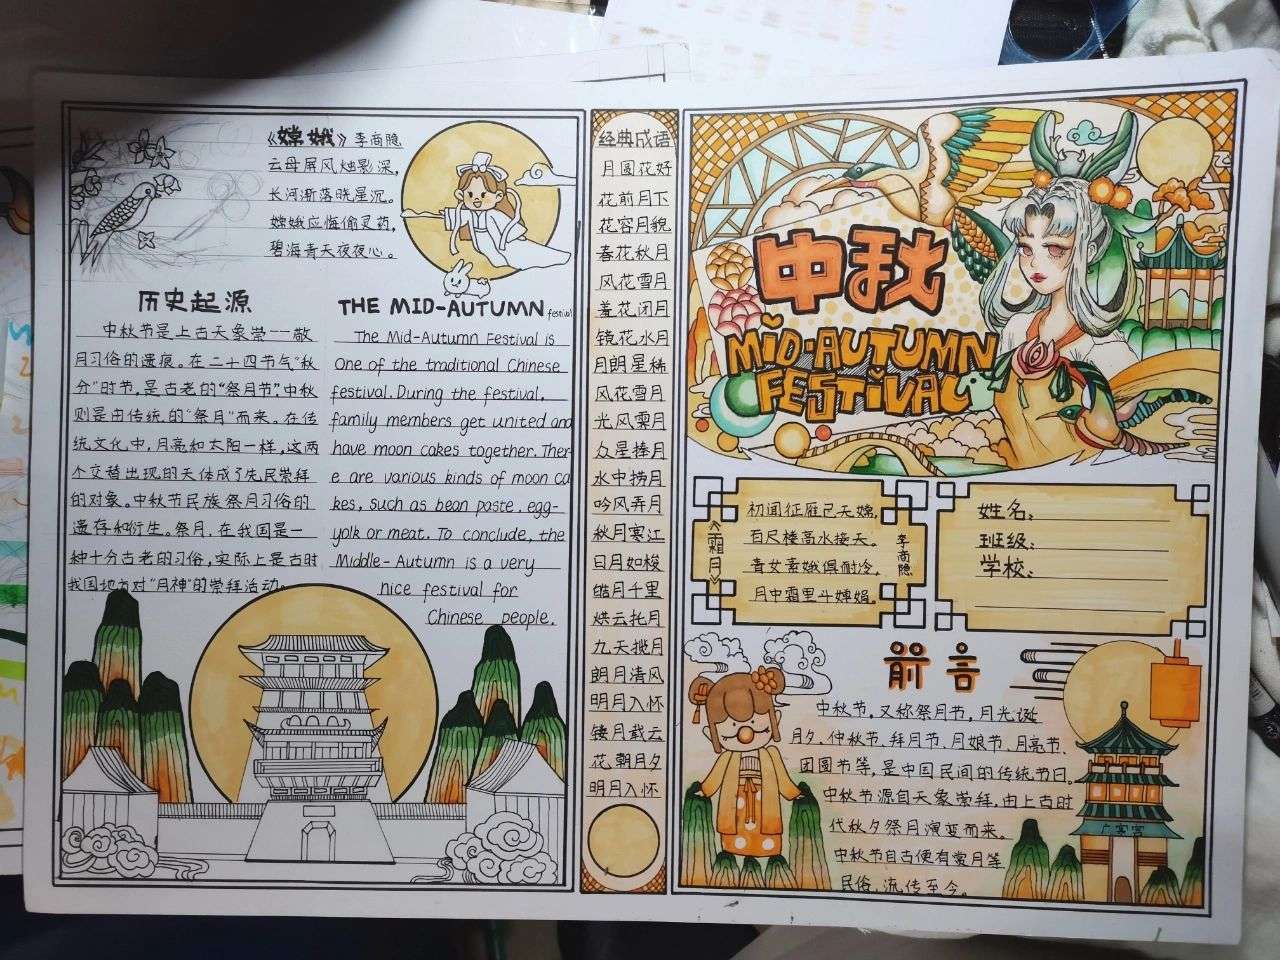 《嫦娥》李商隐
云母屏风烛影深，
长河渐落晓星沉。
嫦娥应悔偷灵药，
碧海青天夜夜心。
历史起源
中秋节是上古天象崇一一敬
月习俗的遗痕。在二十四节气"秋
分"时节，是古老的"祭月节"，中秋
则是由传统的"祭月"而来。在传
统文化中，月亮和太阳一样，这两
个交替出现的天体成了先民崇拜
的对象。中秋节民族祭月习俗的
遗存和衍生。祭月，在我国是一
种十分古老的习俗，实际上是古时
我国地方对"月神"的崇拜活动。
THE MID-AUTUMN festival
The Mid-Autumn Festival is
One of the traditional Chinese
festival. During the festival.
family members get united and
have moon cakes together. Ther
e are various kinds of moon ca
kes, such as bean paste, egg-
yolk or meat. To conclude, the
Middle-Autumn is a very
nice festival for
Chinese people.
经典成语
月圆花好
花前月下
花容月貌
春花秋月
风花雪月
羞花闭月
镜花水月
月朗星稀
风花雪月
光风霁月
众星捧月
水中捞月
吟风弄月
秋月寒江
日月如梭
皓月千里
烘云托月
九天揽月
朗月清风
明月入怀
镂月裁云
花朝月夕
明月入怀
中秋
MID-AUTUMN
FESTIVAL
《霜月》
初闻征雁已无蝉，
百尺楼高水接天。
青女素娥俱耐冷，
月中霜里斗婵娟。
李商隐
姓名：
班级：
学校：
前言
中秋节，又称祭月节，月光诞
月夕、仲秋节、拜月节、月娘节、月亮节、
团圆节等，是中国民间的传统节日。
中秋节源自天象崇拜，由上古时
代秋夕祭月演变而来。
中秋节自古便有赏月等
民俗，流传至今。
广寒宫